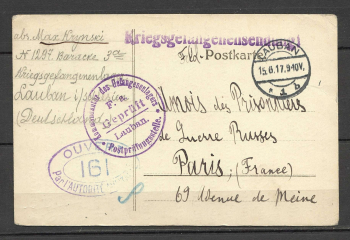 Kriegsgefangenensendung
Feld-Postkarte
abs. Max Rzynski
N 1297. Baracke 3a
Kriegsgefangenenlager
Lauban i/Schlesien
(Deutschland)
LAUBAN
15.6.17. 9-10V.
* 1 b
Kommandantur des Gefangenenlagers
F. a.
Geprüft
Lauban.
Postprüfungsstelle.
OUVERT
161
Par l'Autorité
Amis des Prisonniers
de Guerre Russes
Paris, (France)
69 Avenue de Meine